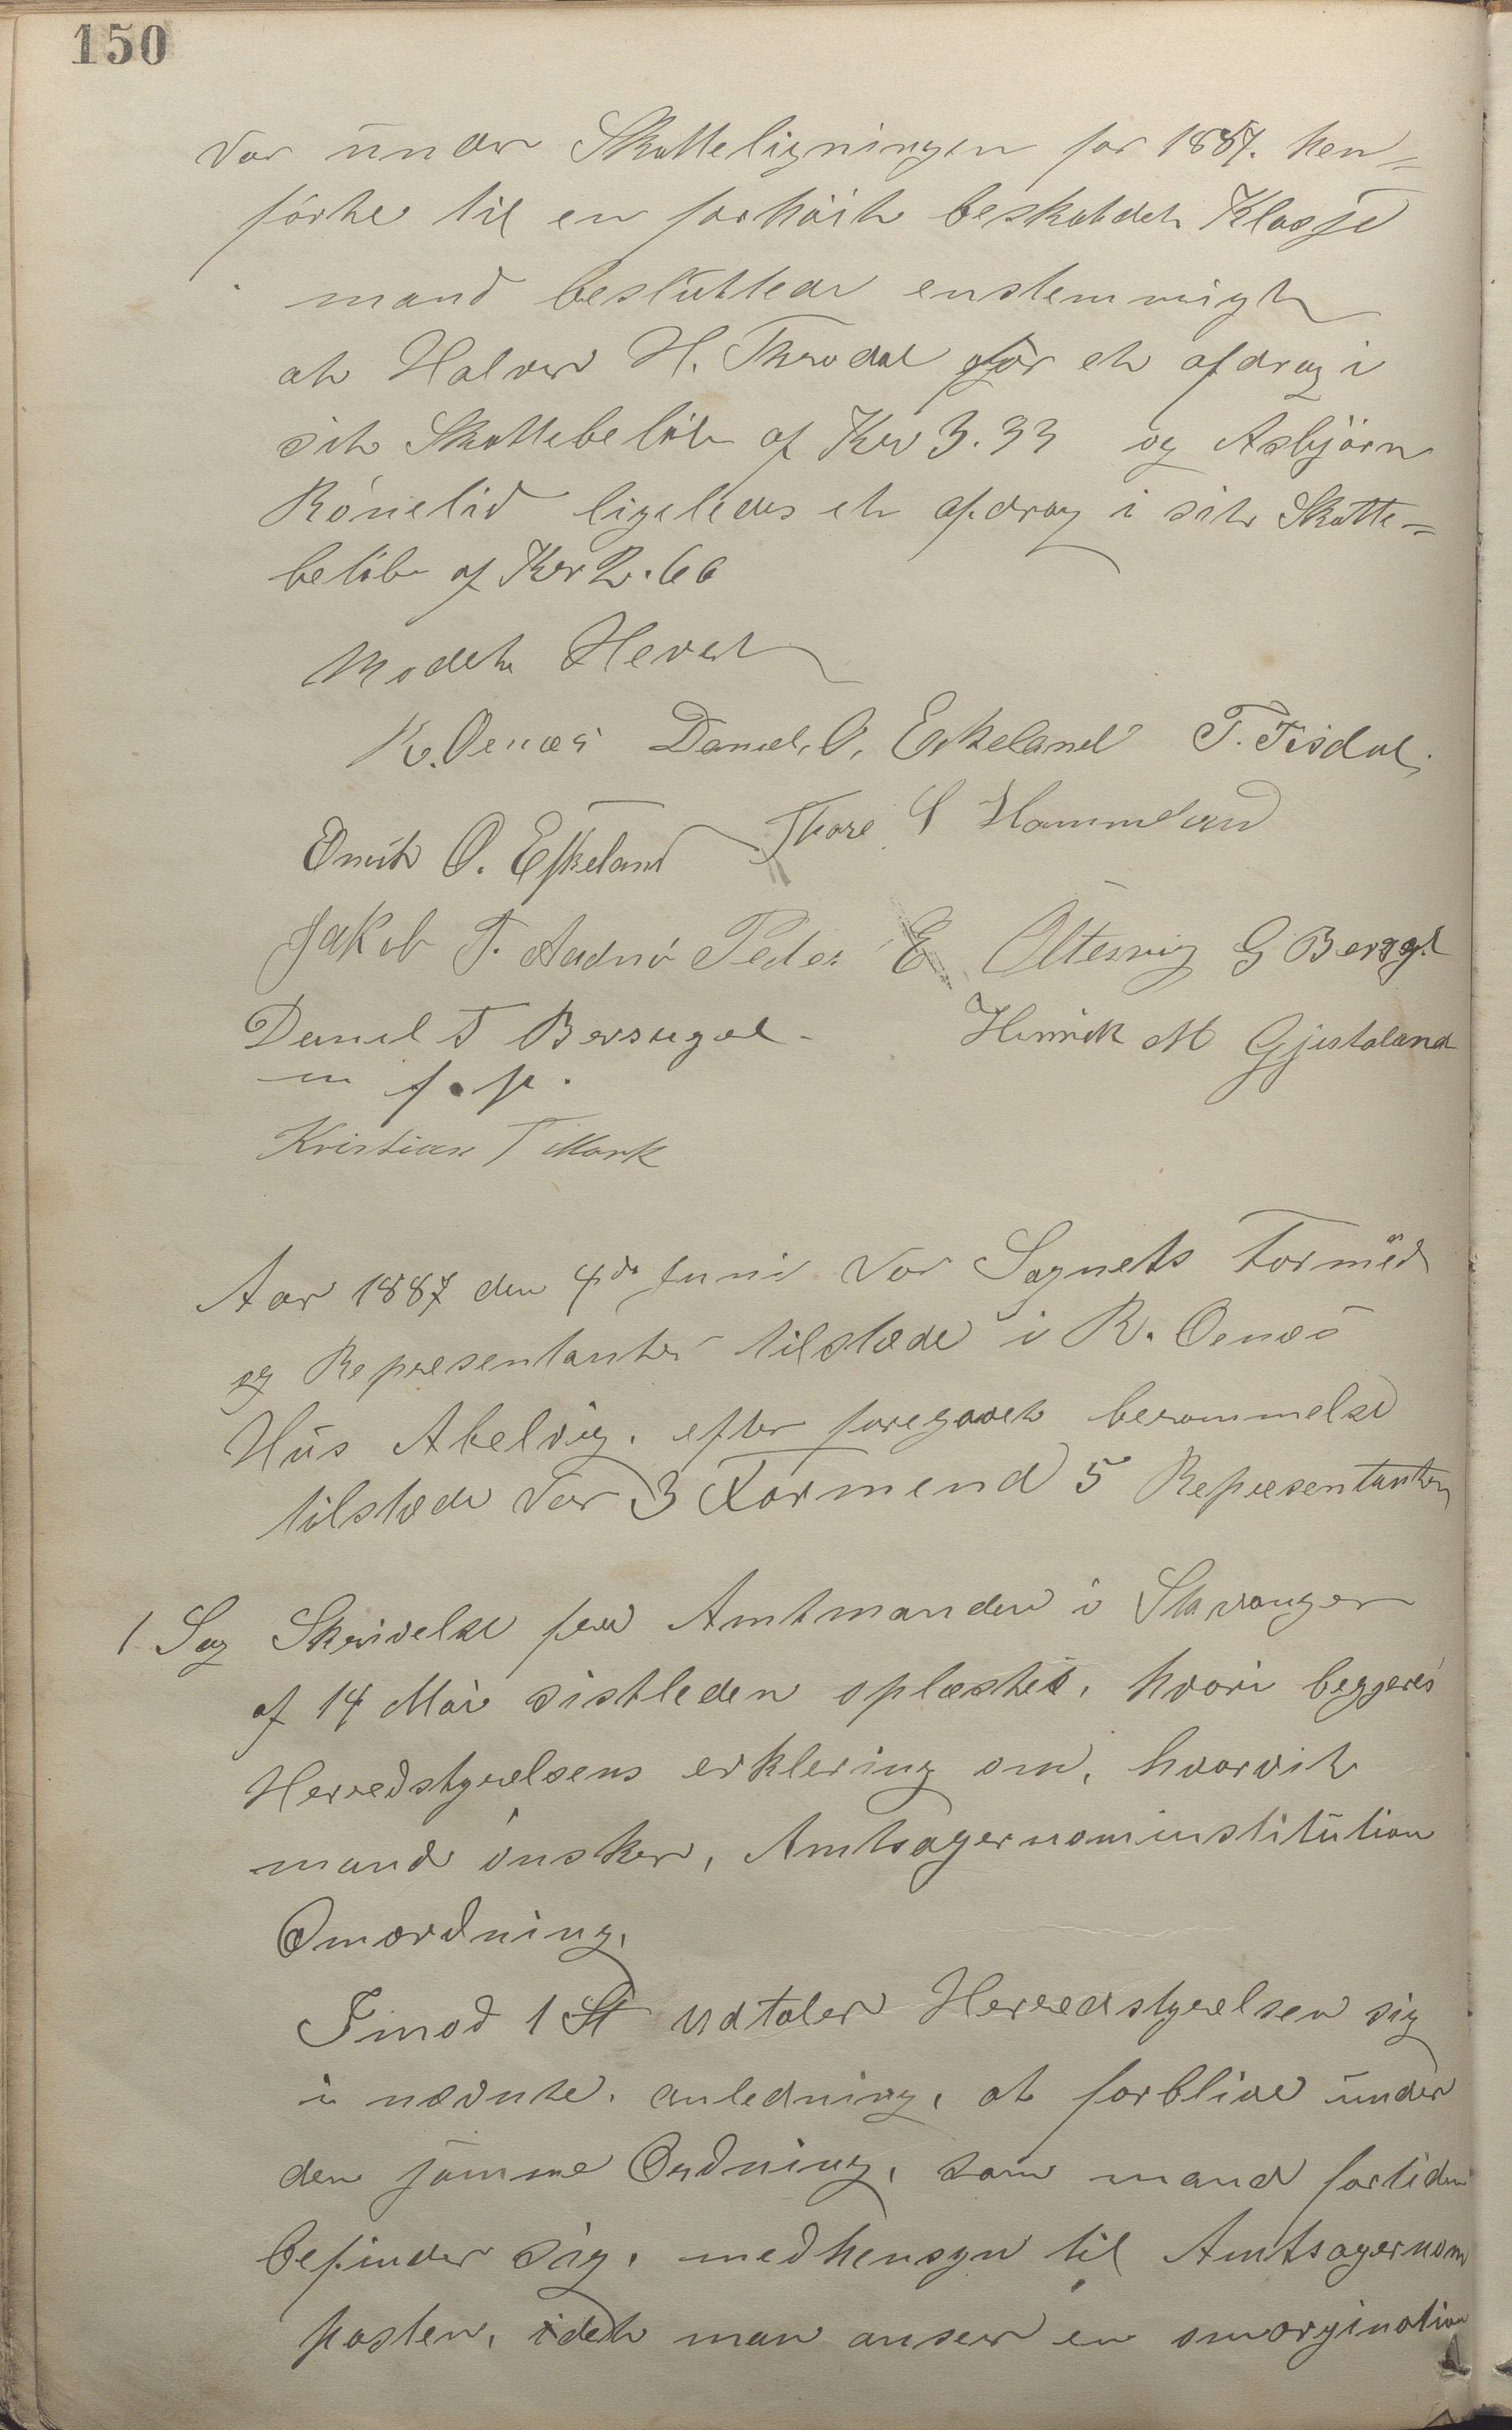 150
var under Skatteligningen for 1887. hen=
förte til en forhöit beskatdet Klasse
mand besluttede enstemmigt
at Halvor H. Throdal gör et afdrag i
sit Skattebelöb af Kr 3.33 og Asbjörn
Rönelid ligeledes et afdrag i sit Skatte=
belöb af Kr 2.66
Modet Hevet
R. Oenæs Daniel. O. Eskeland T. Tisdal.
Omit O. Eskeland Thore S Hammeland
Jakob T. Aadnö Peder E Oltesvig G Bersagel
Daniel T Bersagel
m f. p.
Hinrik M Gjestaland
Kristian T Mark
Aar 1887 den 4de Juni var Sagnets Formæd
og Repræsentanter tilstæde i R. Oenæs
Hus Abelvig. efter foregaaet berammelse
tilstæde var 3 Formend 5 Repræsentanter
1 Sag Skrivelse fra Amtmanden i Stavanger
af 14 Mai sistleden oplæstes, hvori beggeres
Herredstyrelsens erklering om, hvorvit
mand önsker, Amtsagernominstitution
Omordning.
Imod 1 St udtaler Herredstyrelsen sig
i nævnte anledning, at forblive under
den samme Ordning, som mand fortiden
befinder sig, medhensyn til Amtsagernom
posten, idet man anser en omorgination